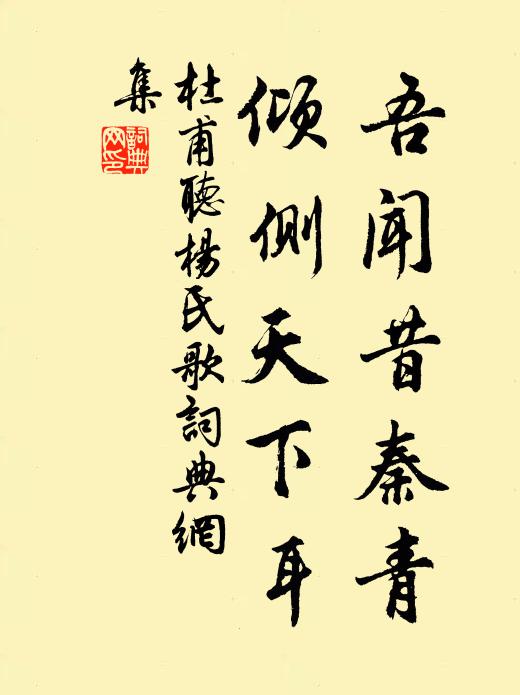 吾聞昔秦青
傾側天下耳
杜甫聽楊氏歌詞典網
集
詞典
网印